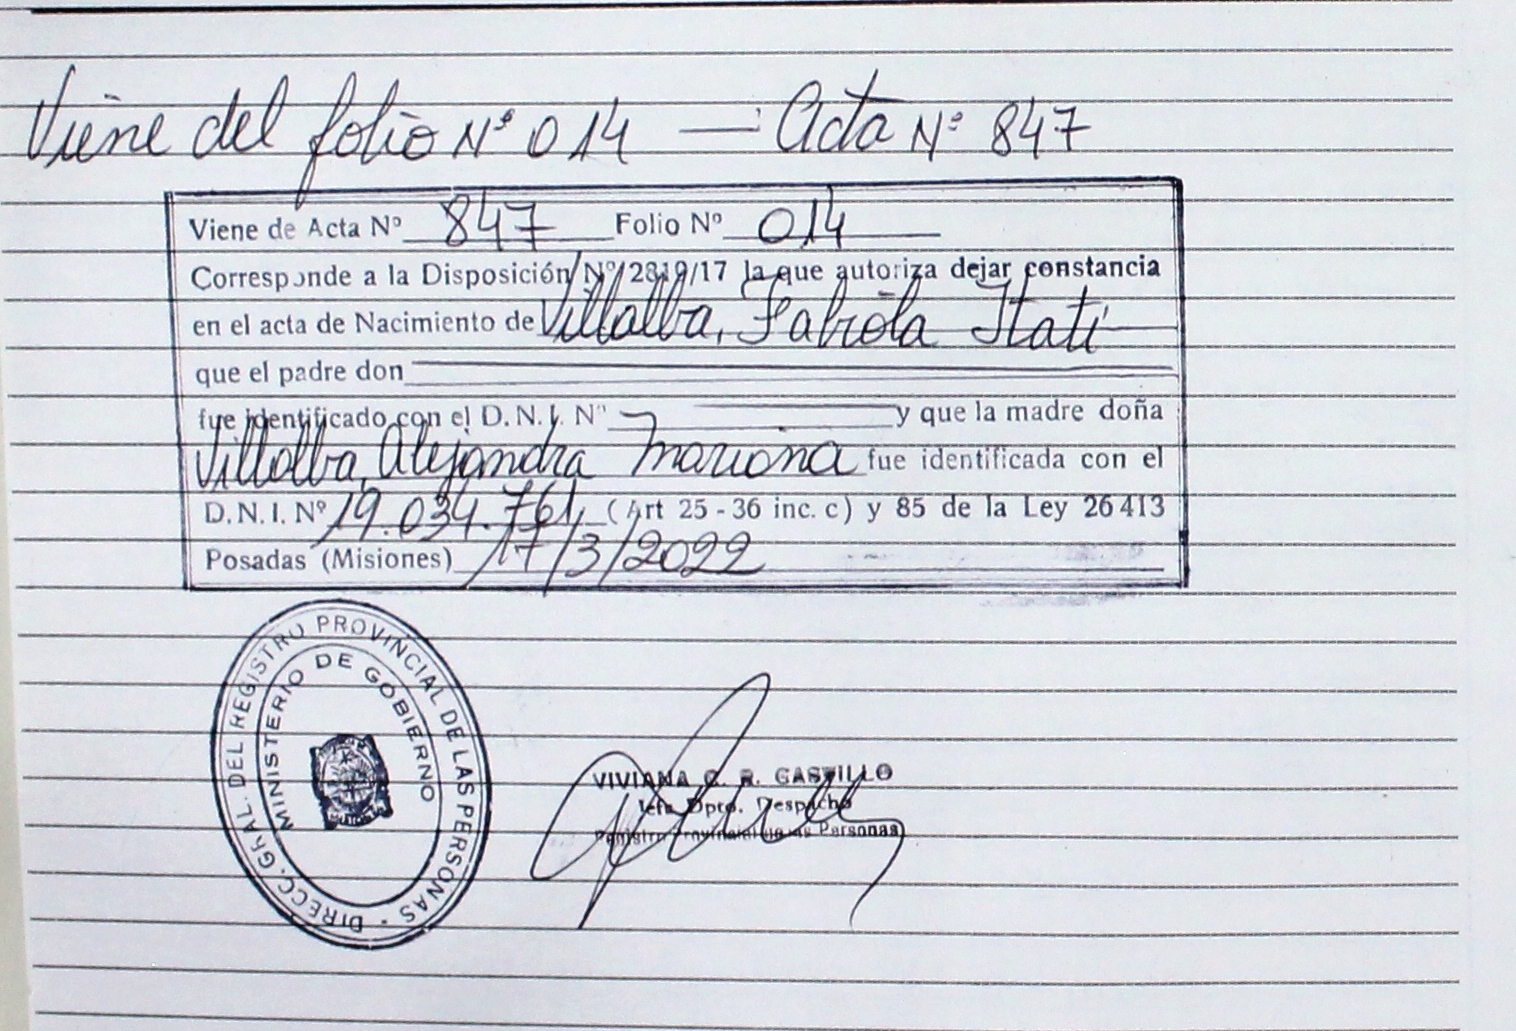 Viene del folio Nº 014 — Acta Nº 847
Viene de Acta Nº 847 Folio Nº 014
Corresponde a la Disposición Nº 2819/17 la que autoriza dejar constancia
en el acta de Nacimiento de Villalba, Fabiola Itatí
que el padre don
fue identificado con el D.N.I. Nº y que la madre doña
Villalba, Alejandra Mariana fue identificada con el
D.N.I. Nº 19.034.761, (Art 25 - 36 inc. c) y 85 de la Ley 26413
Posadas (Misiones) 17/3/2022
DIRECC. GRAL. DEL REGISTRO PROVINCIAL DE LAS PERSONAS -
MINISTERIO DE GOBIERNO
VIVIANA C. R. CASTILLO
Jefa Dpto. Despacho
Registro Provincial de las Personas